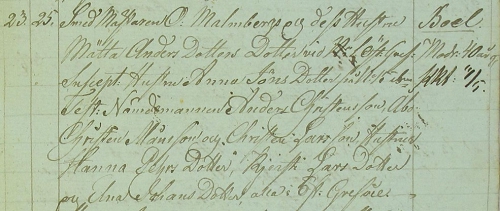 23. 25. Smed Mästaren O. Malmberg og dess Hustru Boel.
Mätta Anders Dotters Dotter Modr: 40 år
Suscept: Hustru Anna Jöns Dotter på N:o 15
Test: Nämdemannen Anders Christensson Åbo
Christen Månsson og Christen Larsson, Hustrur
Hanna Pehrs Dotter, Kjersti Lars Dotter
og Elna Johans Dotter, alla